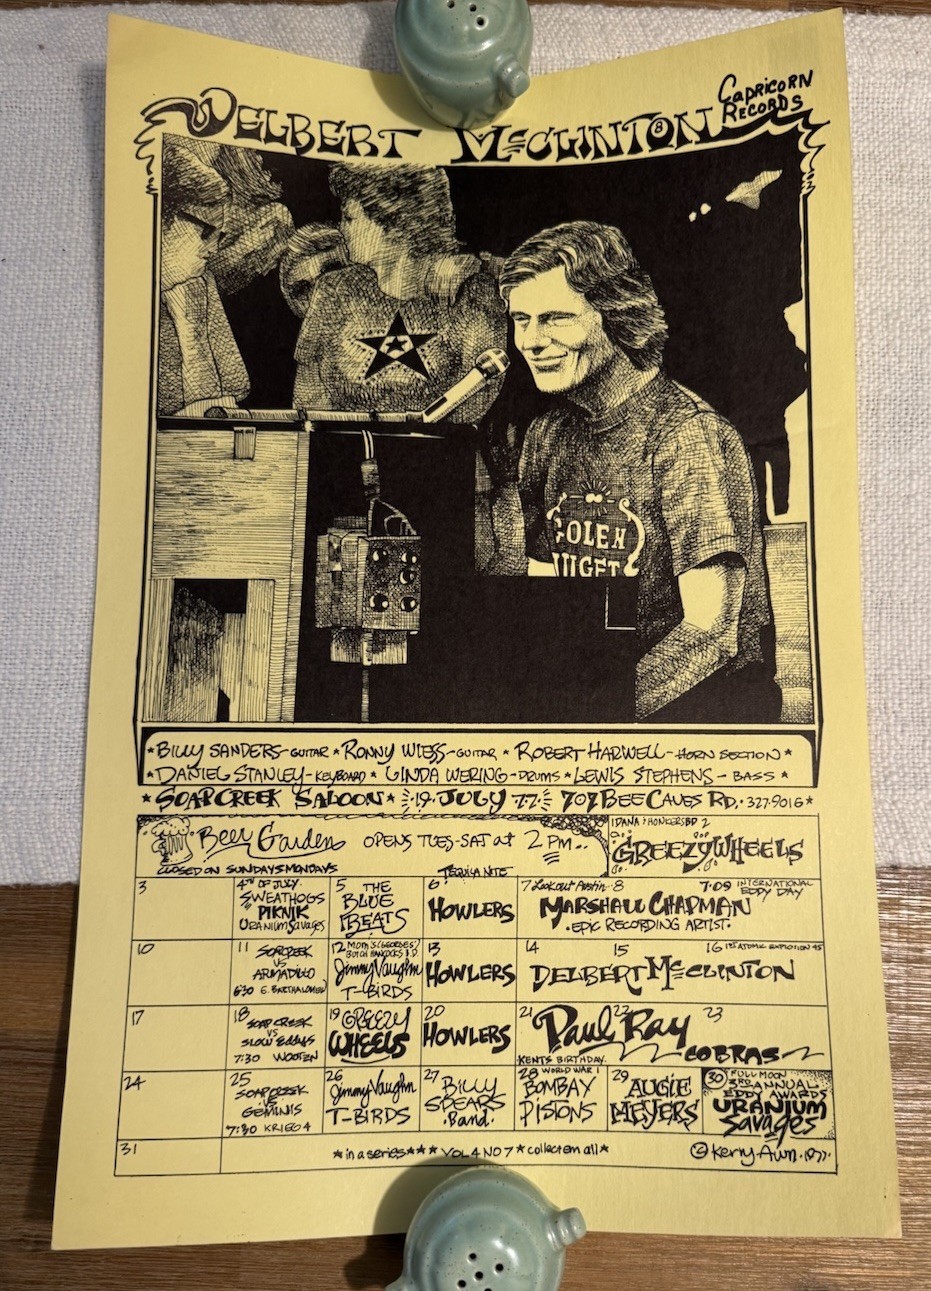 DELBERT McCLINTON
CAPRICORN
RECORDS
GOLEN
NUGET
*BILLY SANDERS-GUITAR * RONNY WIESS-GUITAR * ROBERT HARWELL-HORN SECTION*
*DANIEL STANLEY-KEYBOARD * LINDA WERING-DRUMS * LEWIS STEPHENS - BASS *
*SOAP CREEK SALOON* JULY 77 707 BEE CAVES RD. 327-9016*
Beer Garden OPENS TUES-SAT at 2 PM..
CLOSED ON SUNDAYS MONDAYS
2
GREEZY WHEELS
3
4TH OF JULY
SWEATHOGS
PIKNIK
URANIUM SAVAGES
5 THE
BLUE
BEATS
TEQUILA NITE
6
HOWLERS
7 Lookout Austin 8
MARSHALL CHAPMAN
EPIC RECORDING ARTIST
7.09 INTERNATIONAL
EDDY DAY
10
11 SOAP CREEK
VS
ARMADILLO
6:30 E. BARTHALOMEW
12 MOM'S (GEORGES)
BUTCH HANCOCKS B.D.
Jimmy Vaughn
T-BIRDS
13
HOWLERS
14 15 16 1ST ATOMIC EXPLOTION 45
DELBERT McCLINTON
17
18 SOAP CREEK
VS
SLOW EDDYS
7:30 WOOTEN
19 GREEZY
WHEELS
20
HOWLERS
21 22 23
Paul Ray
COBRAS
KENTS BIRTHDAY
24
25
SOAPCREEK
VS
GEMINIS
7:30 KRIEG 4
26
Jimmy Vaughn
T-BIRDS
27 BILLY
SPEARS
Band.
28 WORLD WAR I
BOMBAY
PISTONS
29 AUGIE
MEYERS
30 FULL MOON
3RD ANNUAL
EDDY AWARDS
URANIUM
Savages
31
*in a series*** VOL 4 NO 7 * collect em all*
© Kerry Awn. 1977.